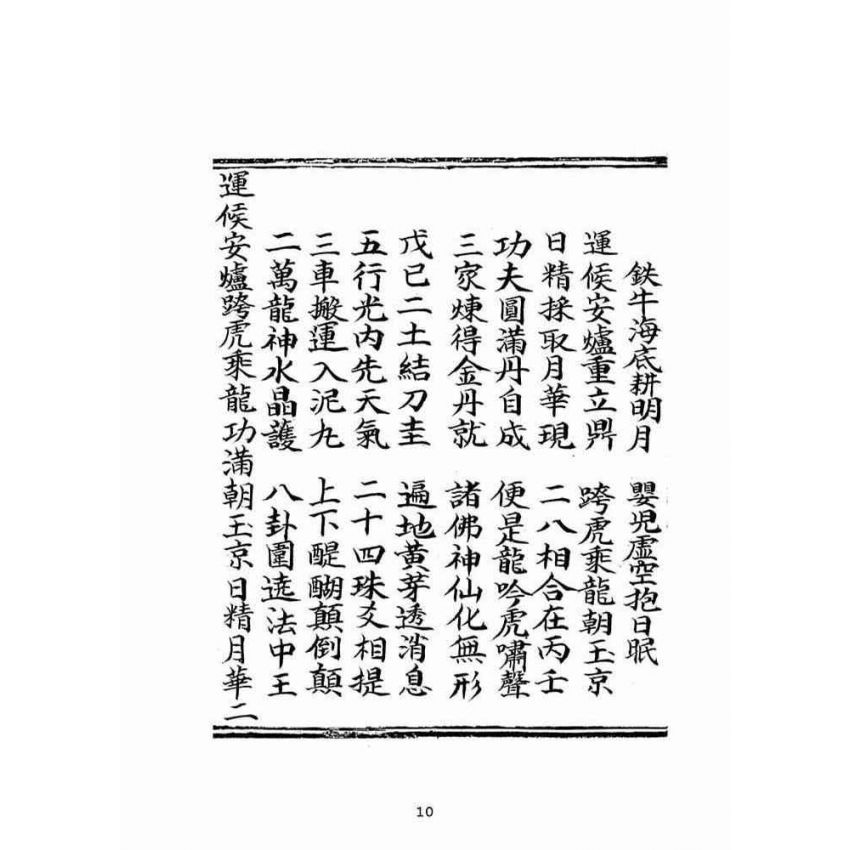 鉄牛海底耕明月　嬰児虛空抱日眠
運候安爐重立鼎　跨虎乘龍朝玉京
日精採取月華現　二八相合在丙壬
功夫圓滿丹自成　便是龍吟虎嘯聲
三家煉得金丹就　諸佛神仙化無形
戊己二土結刀圭　遍地黃芽透消息
五行光內先天氣　二十四珠爻相提
三車搬運入泥丸　上下醍醐顛倒顛
二萬龍神水晶護　八卦圍遶法中王
運候安爐跨虎乘龍功滿朝玉京日精月華二
10